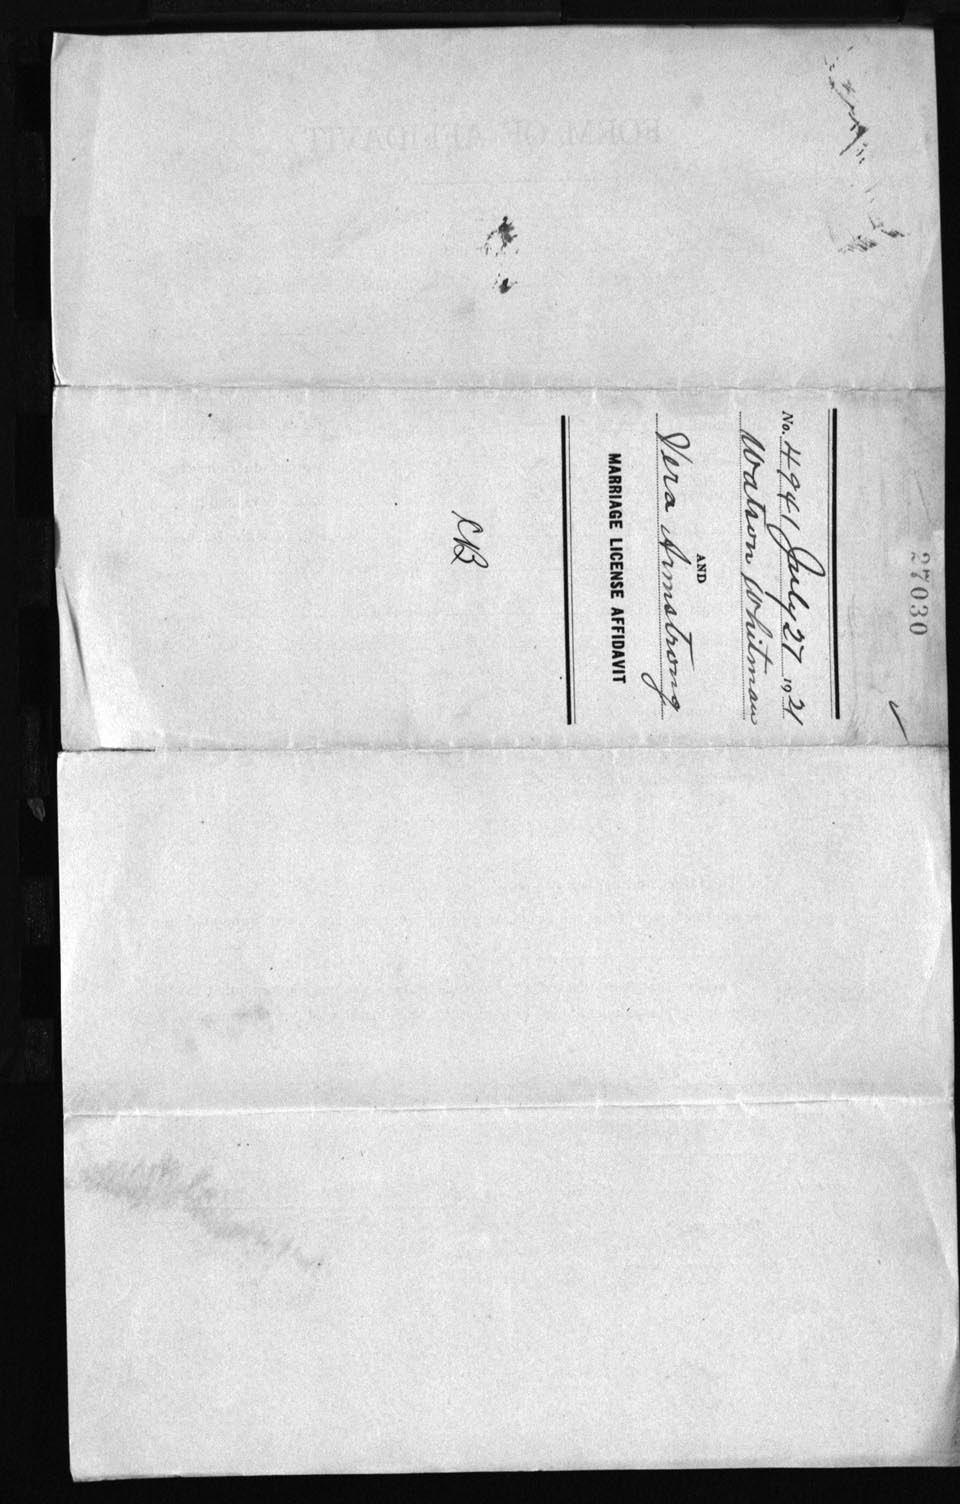 27030
No. 4941 July 27 1921
Watson Whitman
AND
Vera Armstrong
MARRIAGE LICENSE AFFIDAVIT
CB
FORM OF AFFIDAVIT